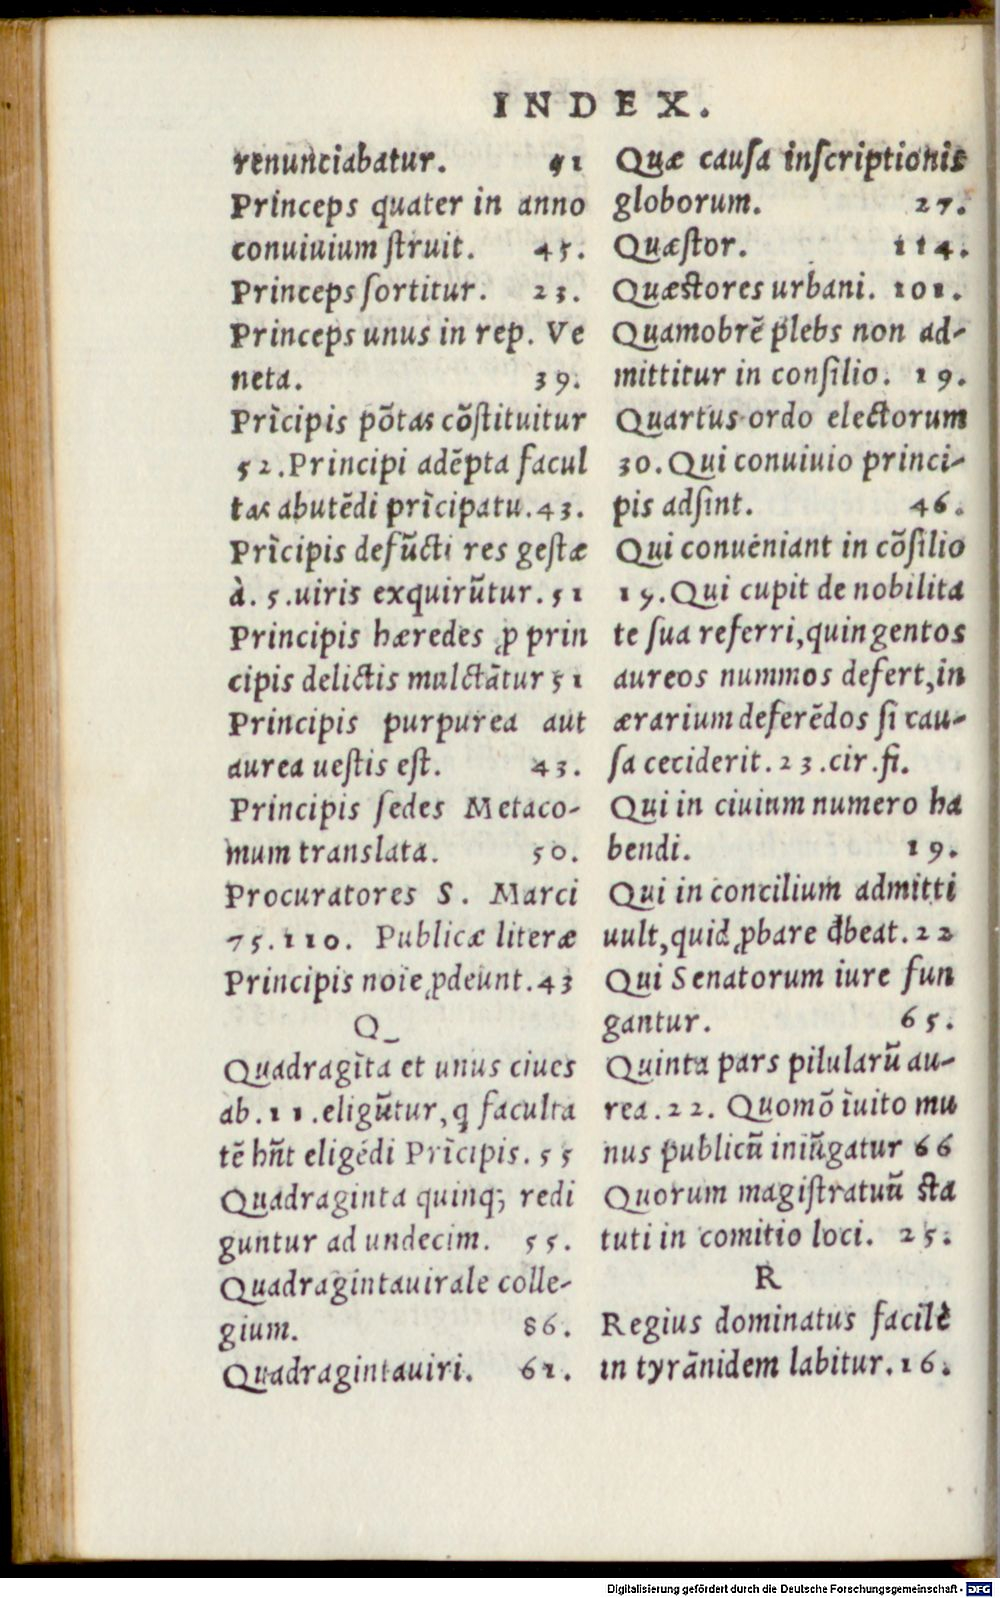 INDEX.
renunciabatur. 41
Princeps quater in anno
conuiuium ſtruit. 45.
Princeps ſortitur. 23.
Princeps unus in rep. Ve
neta. 39.
Prĩcipis põtas cõſtituitur
52. Principi adẽpta facul
tas abutẽdi prĩcipatu. 43.
Prĩcipis defũcti res geſtæ
à. 5. uiris exquirũtur. 51
Principis hæredes ꝓ prin
cipis delictis mulctãtur 51
Principis purpurea aut
aurea ueſtis eſt. 43.
Principis ſedes Metaco-
mum translata. 50.
Procuratores S. Marci
75. 110. Publicæ literæ
Principis noĩe ꝓdeunt. 43
Q
Quadragĩta et unus ciues
ab. 11. eligũtur, q̃ faculta
tẽ hñt eligẽdi Prĩcipis. 55
Quadraginta quinq; redi
guntur ad undecim. 55.
Quadragintauirale colle-
gium. 86.
Quadragintauiri. 61.
Quæ cauſa inſcriptionis
globorum. 27.
Quæſtor. 114.
Quæſtores urbani. 101.
Quamobrẽ plebs non ad-
mittitur in conſilio. 19.
Quartus ordo electorum
30. Qui conuiuio princi-
pis adſint. 46.
Qui conueniant in cõſilio
19. Qui cupit de nobilita
te ſua referri, quingentos
aureos nummos defert, in
ærarium deferẽdos ſi cau-
ſa ceciderit. 23. cir. fi.
Qui in ciuium numero ha
bendi. 19.
Qui in concilium admitti
uult, quid ꝓbare đbeat. 22
Qui Senatorum iure fun
gantur. 65.
Quinta pars pilularũ au-
rea. 22. Quomõ ĩuito mu
nus publicũ iniũgatur 66
Quorum magiſtratuũ ſta
tuti in comitio loci. 25.
R
Regius dominatus facilè
in tyrãnidem labitur. 16.
Digitalisierung gefördert durch die Deutsche Forschungsgemeinschaft - DFG